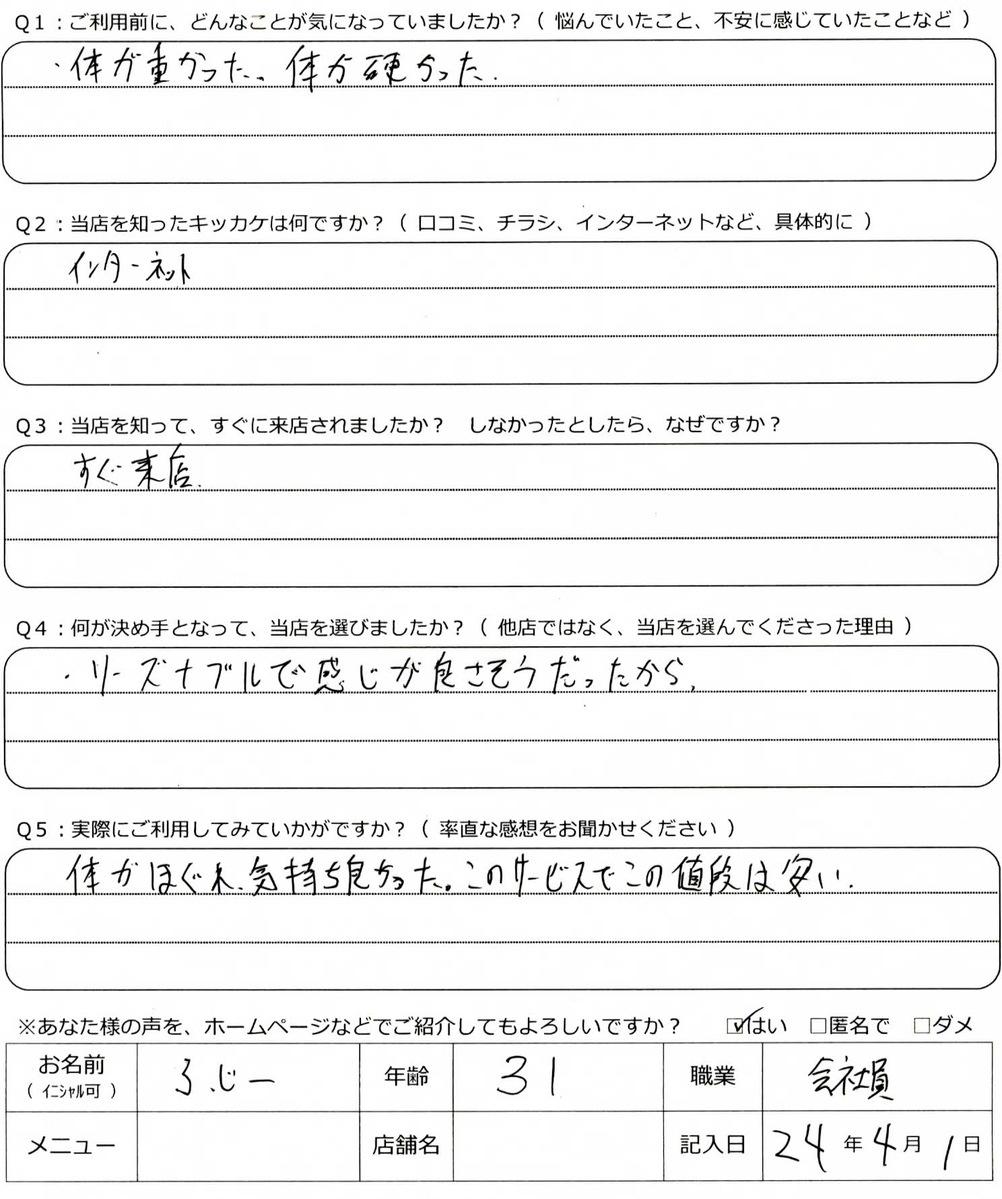 Q1：ご利用前に、どんなことが気になっていましたか？（ 悩んでいたこと、不安に感じていたことなど ）
・体が重かった。体が硬かった.
Q2：当店を知ったキッカケは何ですか？（ 口コミ、チラシ、インターネットなど、具体的に ）
インターネット
Q3：当店を知って、すぐに来店されましたか？　しなかったとしたら、なぜですか？
すぐ来店.
Q4：何が決め手となって、当店を選びましたか？（ 他店ではなく、当店を選んでくださった理由 ）
・リーズナブルで感じが良さそうだったから.
Q5：実際にご利用してみていかがですか？（ 率直な感想をお聞かせください ）
体がほぐれ、気持ち良かった。このサービスでこの値段は安い.
※あなた様の声を、ホームページなどでご紹介してもよろしいですか？　☑はい　□匿名で　□ダメ
お名前 ふじー 年齢 31 職業 会社員
（ ｲﾆｼｬﾙ可 ）
メニュー 店舗名 記入日 24年4月1日